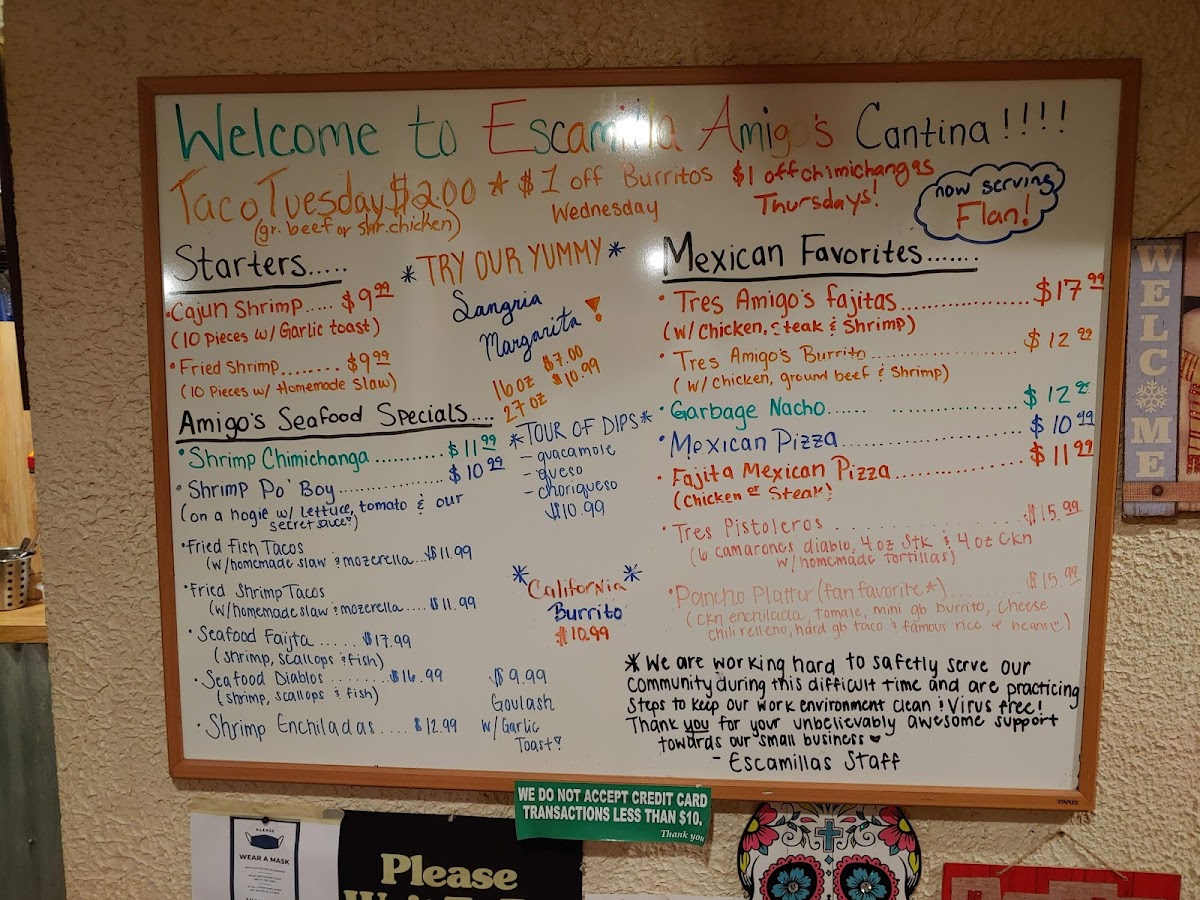 Welcome to Escamilla Amigo's Cantina!!!!
Taco Tuesday $2.00 * $1 off Burritos $1 off chimichangas
(gr. beef or shr. chicken) Wednesday Thursdays!
now serving
Flan!
Starters.....
• Cajun Shrimp..... $9.99
(10 Pieces w/ Garlic toast)
• Fried Shrimp........ $9.99
(10 Pieces w/ Homemade slaw)
Amigo's Seafood Specials....
• Shrimp Chimichanga.......... $11.99
• Shrimp Po' Boy.................. $10.99
(on a hogie w/ lettuce, tomato & our
secret sauce)
• Fried Fish Tacos
(w/homemade slaw & mozerella...$11.99
• Fried Shrimp Tacos
(w/homemade slaw & mozerella.... $11.99
• Seafood Faijta...... $17.99
(shrimp, scallops & fish)
• Seafood Diablos........$16.99
(shrimp, scallops & fish)
• Shrimp Enchiladas.... $12.99
* TRY OUR YUMMY *
Sangria
Margarita!
16 oz $7.00
27 oz $10.99
*TOUR OF DIPS*
- guacamole
- queso
- choriqueso
$10.99
* California *
Burrito
$10.99
$9.99
Goulash
w/ Garlic
Toast!
Mexican Favorites.......
• Tres Amigo's fajitas..................... $17.99
(w/ Chicken, Steak & Shrimp)
• Tres Amigo's Burrito..................... $12.99
(w/ Chicken, ground beef & Shrimp)
• Garbage Nacho..... .................... $12.25
• Mexican Pizza........................... $10.99
• Fajita Mexican Pizza.................. $11.99
(Chicken or Steak)
• Tres Pistoleros ..................... $15.99
(6 camarones diablo, 4 oz Stk & 4 oz Ckn
w/homemade tortillas)
• Pancho Platter (fan favorite*)............. $15.99
(ckn enchilada, tomale, mini gb burrito, cheese
chili relleno, hard gb taco & famous rice & beans)
* We are working hard to safetly serve our
Community during this difficult time and are practicing
Steps to keep our work environment clean & Virus free!
Thank you for your unbelievably awesome support
towards our small business
- Escamillas Staff
STAPLES
WELCOME
WE DO NOT ACCEPT CREDIT CARD
TRANSACTIONS LESS THAN $10.
Thank you
PLEASE
WEAR A MASK
Please